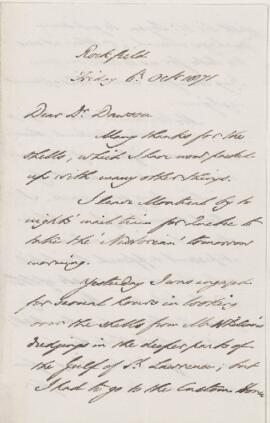 Rockfield
Friday 6. Oct. 1871
Dear Dr. Dawson
Many thanks for the
shells, which I have now packed
up with many other things.
I leave Montreal by to
night's mail train for Quebec to
take the 'Nestorian' tomorrow
morning.
Yesterday I was engaged
for several hours in looking
over the shells from Mr. Whiteaves'
dredgings in the deeper parts of
the Gulf of St. Lawrence; but
I had to go to the Custom House